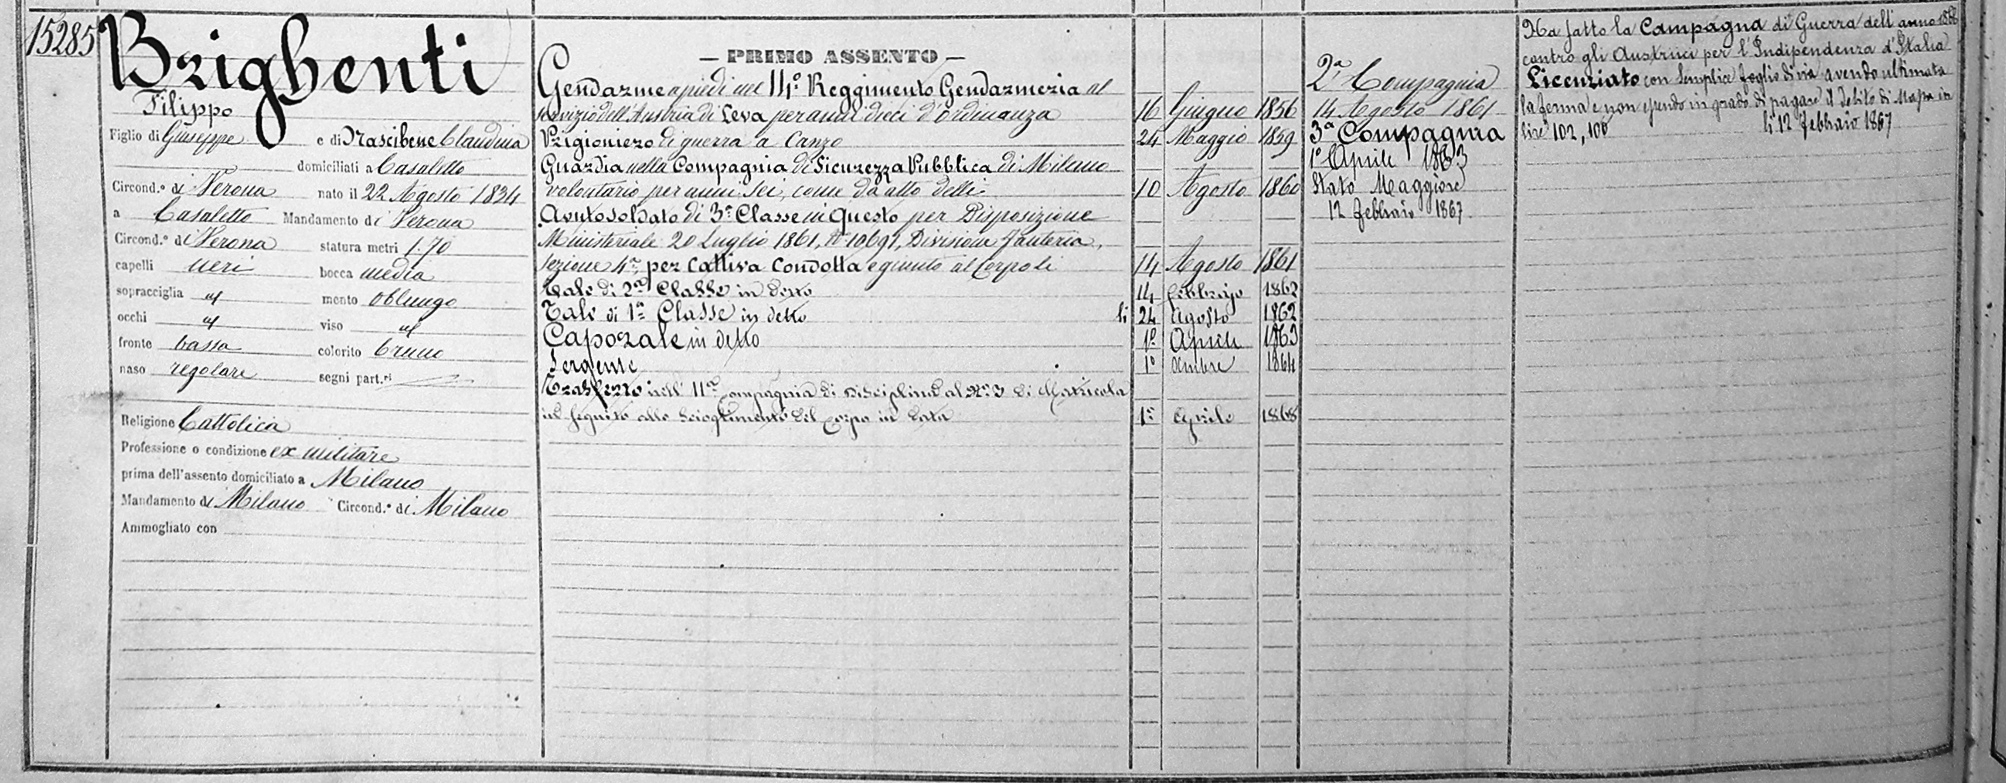 15285
Brighenti
Filippo
Figlio di Giuseppe e di Nascibene Claudina
domiciliati a Casaletto
Circond.º di Verona nato il 22 Agosto 1834
a Casaletto Mandamento di Verona
Circond.º di Verona statura metri 1.70
capelli neri bocca media
sopracciglia " mento oblungo
occhi " viso "
fronte bassa colorito bruno
naso regolare segni part.ri
Religione Cattolica
Professione o condizione ex militare
prima dell'assento domiciliato a Milano
Mandamento di Milano Circond.º di Milano
Ammogliato con
— PRIMO ASSENTO —
Gendarme a piedi nel 14º Reggimento Gendarmeria al
servizio dell'Austria di Leva per anni dieci d'ordinanza 16 Giugno 1856
Prigioniero di guerra a Canzo 24 Maggio 1859
Guardia nella Compagnia di Sicurezza Pubblica di Milano
volontario per anni sei, come da atto delli 10 Agosto 1860
Avuto soldato di 3ª Classe in Questo per Disposizione
Ministeriale 20 Luglio 1861, Nº 10691, Divisione Fanteria,
Sezione 4ª, per Cattiva Condotta e giunto al Corpo li 14 Agosto 1861
Tale di 2ª Classe in detto 14 febbrajo 1862
Tale di 1ª Classe in detto li 24 Agosto 1862
Caporale in detto 1º Aprile 1863
Sergente 1º 1864
Trasferto nell' 11ª Compagnia di Disciplina al Nº 3 di Matricola
in seguito allo scioglimento del Corpo in data 1º Aprile 1868
2ª Compagnia
14 Agosto 1861
3ª Compagnia
1º Aprile 1863
Stato Maggiore
12 febbraio 1867
Ha fatto la Campagna di Guerra dell'anno 1866
contro gli Austriaci per l'Indipendenza d'Italia
Licenziato con semplice foglio di via avendo ultimata
la ferma e non essendo in grado di pagare il debito di Massa in
lire 102,100 li 12 febbraio 1867